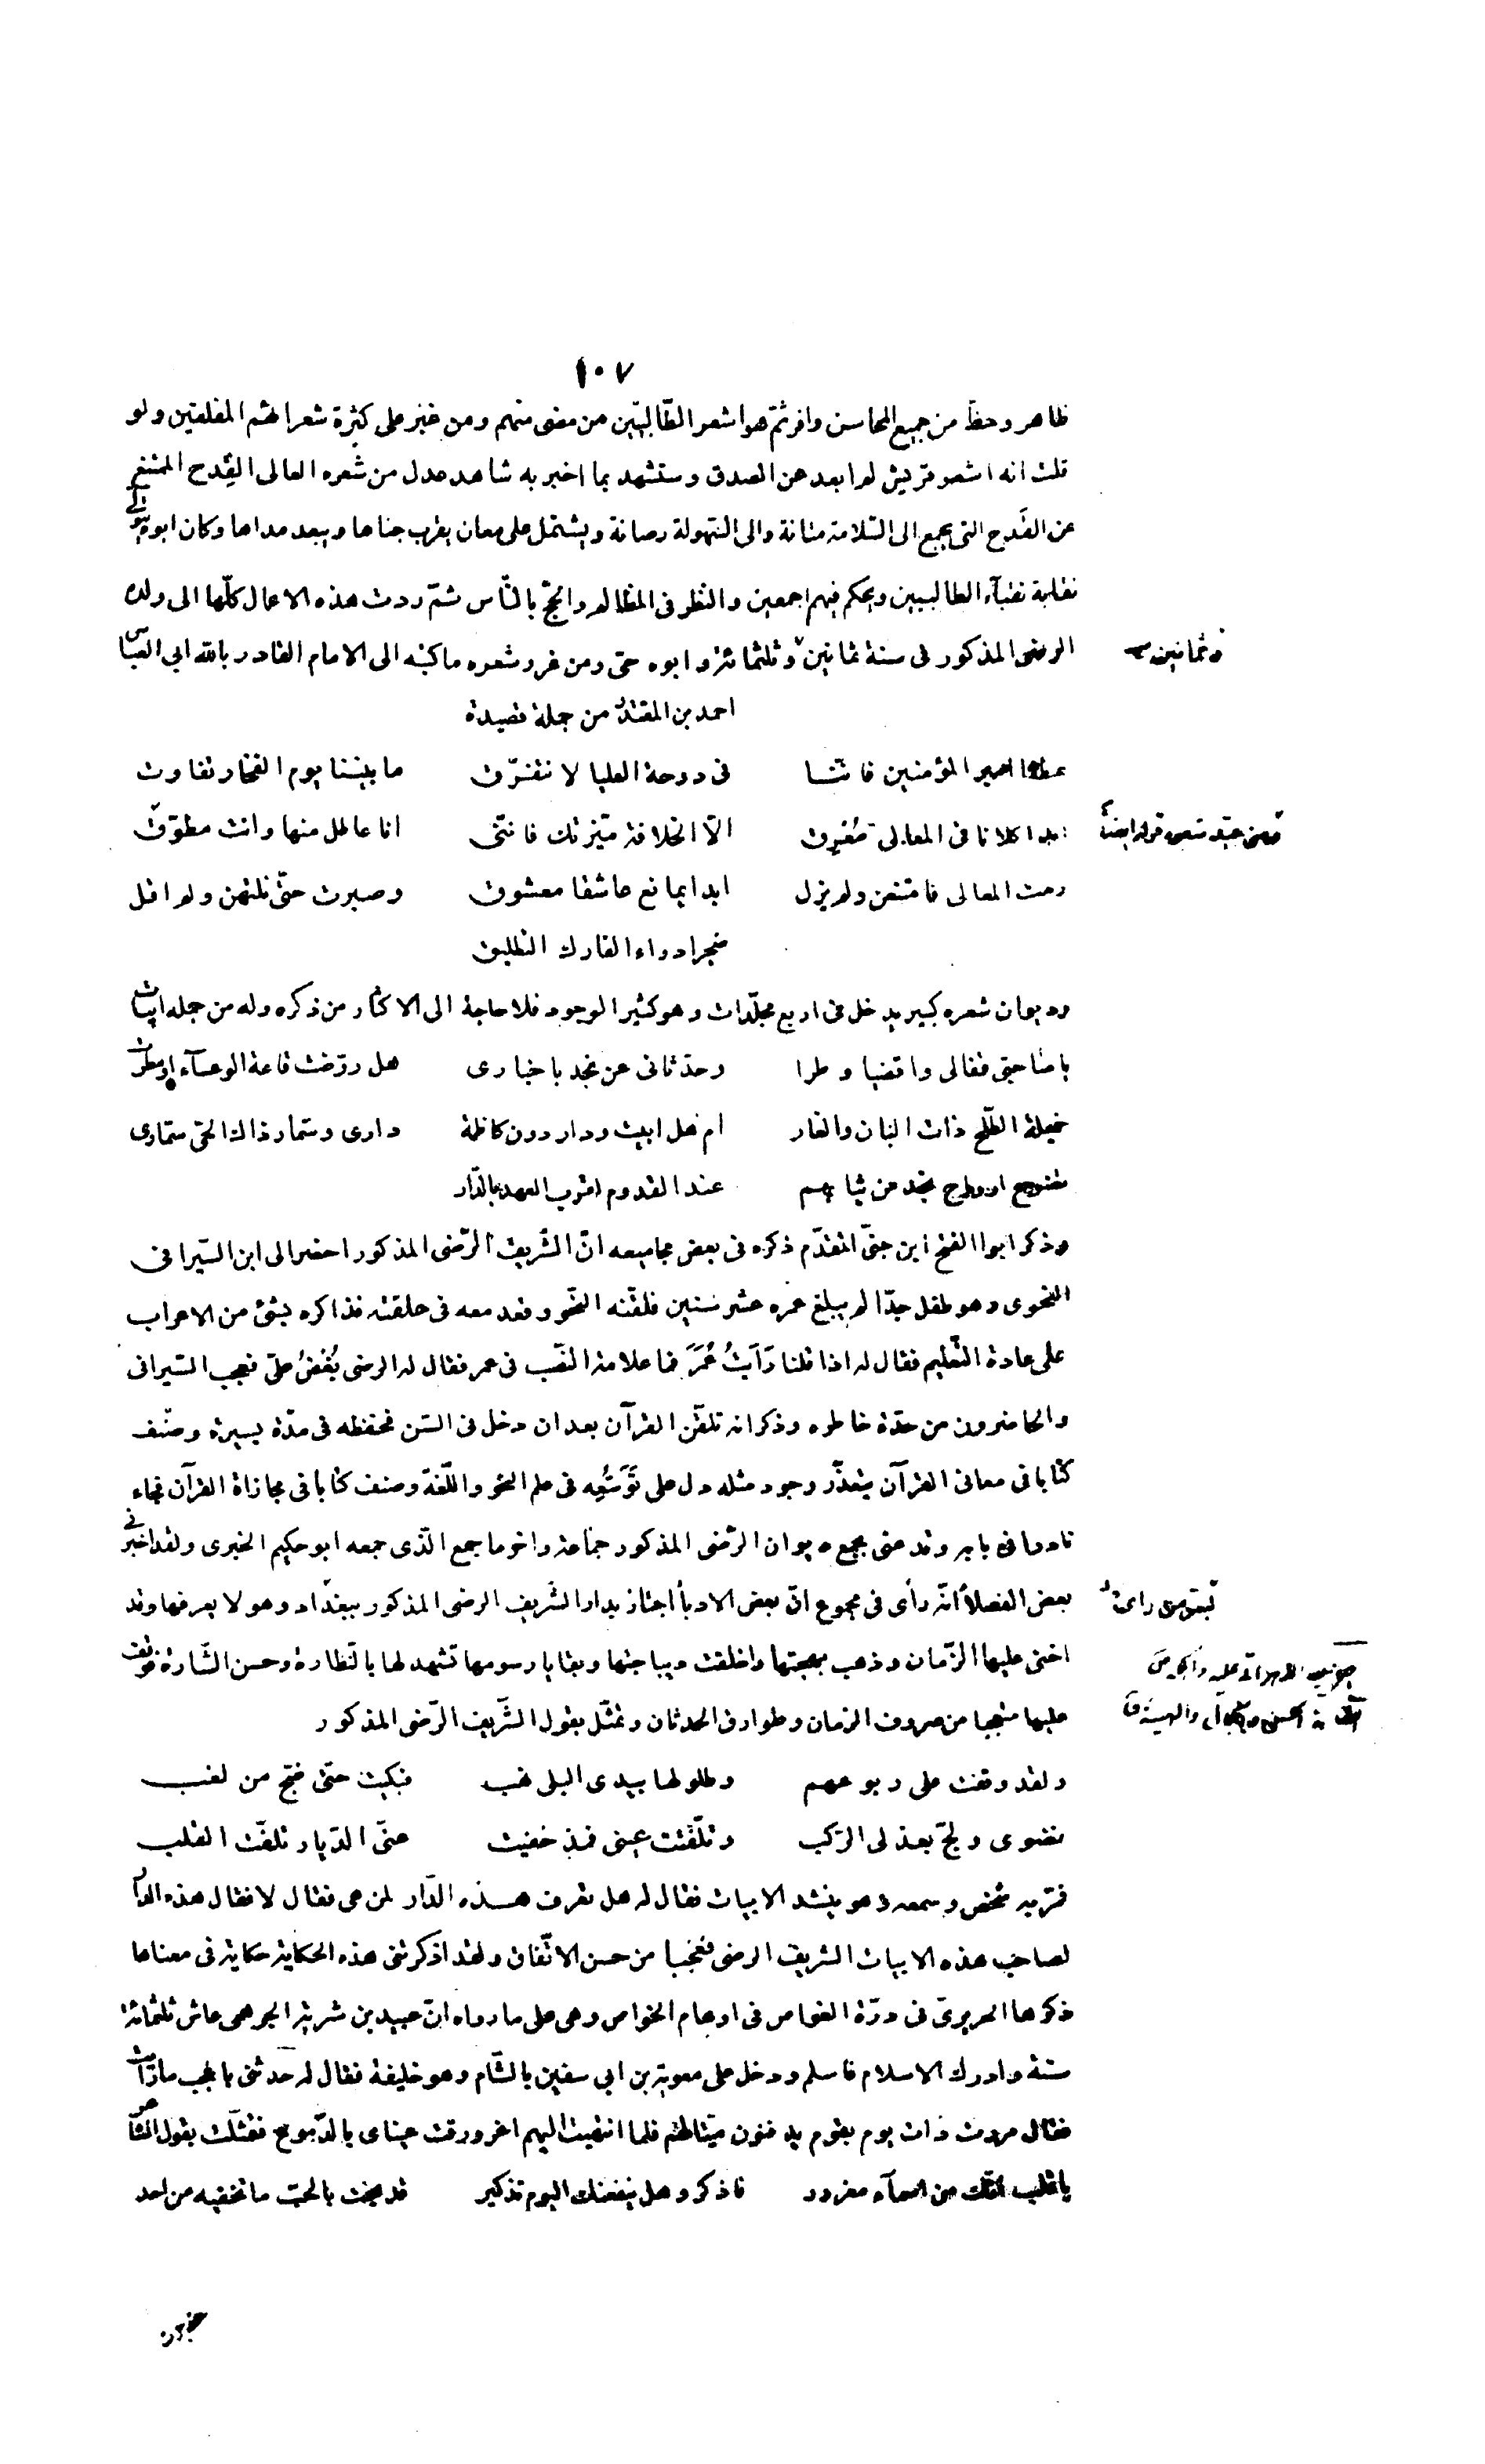 ١٠٧
ظاهر وحظ من جميع المحاسن وافر ثم هو اشعر الطالبيّين من مضى منهم ومن غبر على كثرة شعرائهم المفلقين ولو
قلت انه اشعر قريش لم ابعد عن الصدق وستشهد بما اخبر به شاهد عدل من شعره العالى القِدح الممتنع
عن القَدح التى يجمع الى السّلامة متانة والى السّهولة رصانة ويشتمل على معان يقرب جناها ويبعد مداها وكان ابوه يتولى
نقابة نقبآء الطالبيين ويحكم فيهم اجمعين والنظر فى المظالم والحجّ بالنّاس ثمّ ردت هذه الاعمال كلّها الى ولده
الرضى المذكور فى سنة ثمانين وثلثمائة وابوه حىّ ومن غرر شعره ما كتبه الى الامام القادر بالله ابى العبّاس
وثمانين
احمد بن المقتدر من جملة قصيدة
عطفا امير المؤمنين فاننا فى دوحة العليا لا نتفرّق ما بيننا يوم الفخار تفاوت
ابدا كلانا فى المعالى مُعْرِق الّا الخلافة ميّزتك فانّنى انا عاطل منها وانت مطوّق
ومن جيد شعره قوله ايضا
رمت المعالى فامتنعن ولم يزل ابدا يمانع عاشقا معشوق وصبرت حتّى نلتهن ولم اقل
ضجرا دواء الفارك التطليق
وديوان شعره كبير يدخل فى اربع مجلّدات وهو كثير الوجود فلا حاجة الى الاكثار من ذكره وله من جمله ابيات
يا صاحبىّ قفالى واقضيا وطرا وحدّثانى عن نجد باخبارى هل روّضت قاعة الوعسآء او مطرت
خميلة الطّلح ذات البان والغار ام هل ابيت ودار دون كاظمة دارى وسمّار ذاك الحىّ سمّارى
تضوع ارواح نجد من ثيابهم عند القدوم لقرب العهد بالدّار
وذكر ابوا الفتح ابن جنىّ المقدّم ذكره فى بعض مجاميعه انّ الشّريف الرّضى المذكور احضر الى ابن السّيرافى
النّحوى وهو طفل جدّا لم يبلغ عمره عشر سنين فلقّنه النّحو وقعد معه فى حلقته فذاكره بشئ من الاعراب
على عادة التّعليم فقال له اذا قلنا رَأَيتُ عُمَرَ فما علامة النّصب فى عمر فقال له الرضى بُغْضُ علىّ فعجب السّيرافى
والحاضرون من حدّة خاطره وذكر انه تلقّن القرآن بعد ان دخل فى السّن فحفظه فى مدّة يسيرة وصنّف
كتابا فى معانى القرآن يتعذّر وجود مثله دل على تَوَسُّعِه فى علم النحو واللّغة وصنف كتابا فى مجازاة القرآن فجاء
نادرا فى بابه وقد عنى بجمع ديوان الرّضى المذكور جماعة واخر ما جمع الّذى جمعه ابو حكيم الخبرى ولقد اخبرنى
بعض الفضلأ انّه رأى فى مجموع انّ بعض الادبأ اجتاز بدار الشّريف الرضى المذكور ببغداد وهو لا يعرفها وقد
اخنى عليها الزّمان وذهب بهجتها واخلقت ديباجتها وبقايا رسومها تشهد لها بالنّظارة وحسن الشّارة فوقف
عليها متعجبا من صروف الزمان وطوارق الحدثان وتمثّل بقول الشّريف الرّضى المذكور
ولقد وقفت على ربوعهم وطلولها بيدى البلى نهب فبكيت حتّى ضجّ من لغب
نضوى ولجّ بعذلى الرّكب وتلّفتت عينى فمذ خفيت عنّى الدّيار تلفّت القلب
فمّر به شخص وسمعه وهو ينشد الابيات فقال له هل تعرف هذه الدّار لمن هى فقال لا فقال هذه الدّار
لصاحب هذه الابيات الشريف الرضى فتعجبا من حسن الاتّفاق ولقد اذكرتنى هذه الحكاية حكاية فى معناها
ذكرها الحريرىّ فى درّة الغواص فى اوهام الخواص وهى على ما رواه انّ عبيد بن شرية الجرهمى عاش ثلثمائة
سنة وادرك الاسلام فاسلم ودخل على معوية بن ابى سفين بالشّام وهو خليفة فقال له حدّثنى باعجب ما رأيت
فقال مررت ذات يوم بقوم يدفنون ميّتا لهم فلما انتهيت اليهم اغرورقت عيناى بالدّموع فتمثّلت بقول الشّاعر
يا قلب انّك من اسمآء مغرور فاذكر وهل ينفعنك اليوم تذكير قد بحت بالحبّ ما تخفيه من احد